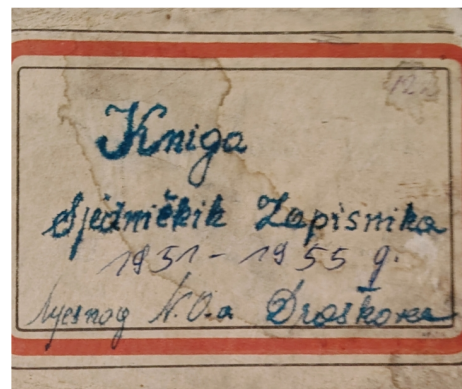 12.
Kniga
Sjedničkih Zapisnika
1951-1955 g.
Mjesnog N.O.a Draškovec